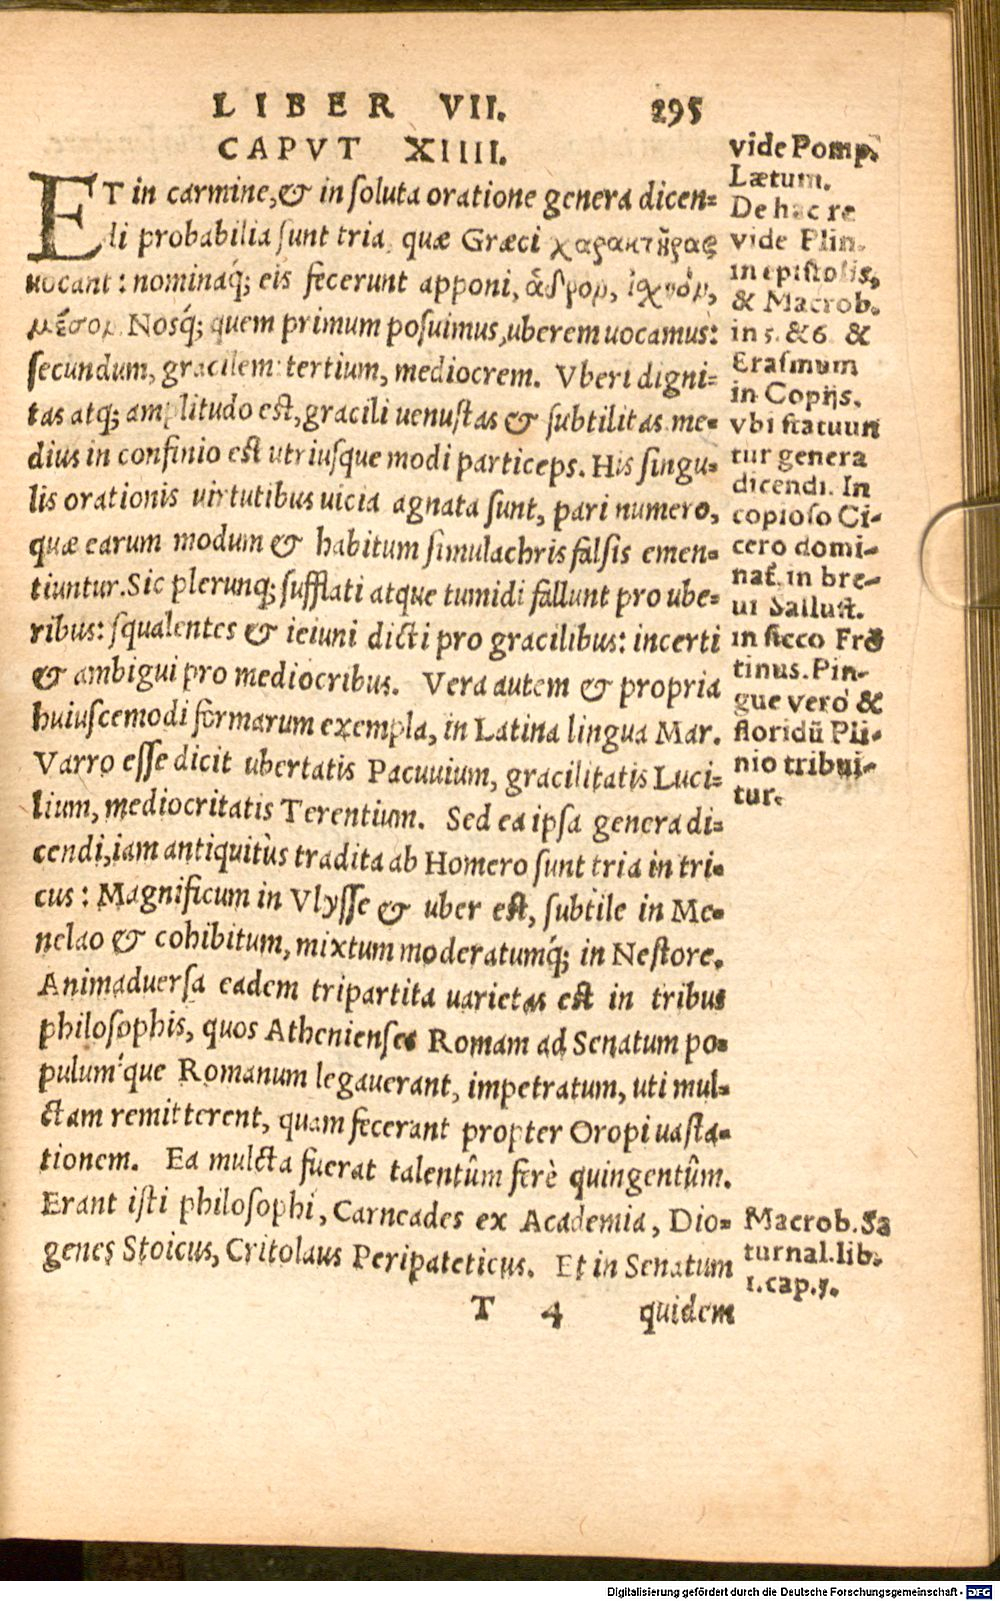 LIBER VII. 295
CAPVT XIIII.
ET in carmine, & in soluta oratione genera dicen=
di probabilia sunt tria, quæ Græci χαρακτῆρας
uocant: nominaq́; eis fecerunt apponi, ἁδρον, ἰχνόν,
μέσον. Nosq́; quem primum posuimus, uberem uocamus:
secundum, gracilem: tertium, mediocrem. Vberi digni=
tas atq; amplitudo est, gracili uenustas & subtilitas. me=
dius in confinio est utriusque modi particeps. His singu=
lis orationis uirtutibus uicia agnata sunt, pari numero,
quæ earum modum & habitum simulachris falsis emen=
tiuntur. Sic plerunq; sufflati atque tumidi fallunt pro ube=
ribus: squalentes & ieiuni dicti pro gracilibus: incerti
& ambigui pro mediocribus. Vera autem & propria
huiuscemodi formarum exempla, in Latina lingua Mar.
Varro esse dicit ubertatis Pacuuium, gracilitatis Luci=
lium, mediocritatis Terentium. Sed ea ipsa genera di=
cendi, iam antiquitùs tradita ab Homero sunt tria in tri=
cus: Magnificum in Vlysse & uber est, subtile in Me=
nelao & cohibitum, mixtum moderatumq́; in Nestore.
Animaduersa eadem tripartita uarietas est in tribus
philosophis, quos Athenienses Romam ad Senatum po=
pulum'que Romanum legauerant, impetratum, uti mul=
ctam remitterent, quam fecerant propter Oropi uasta=
tionem. Ea mulcta fuerat talentûm ferè quingentûm.
Erant isti philosophi, Carneades ex Academia, Dio=
genes Stoicus, Critolaus Peripateticus. Et in Senatum
T 4 quidem
vide Pomp.
Lætum.
De hac re
vide Plin.
in epistolis,
& Macrob.
in 5. & 6 &
Erasmum
in Copijs.
vbi statuun
tur genera
dicendi. In
copioso Ci-
cero domi-
nat. in bre-
ui Sallust.
in sicco Frō
tinus. Pin-
gue verò &
floridū Pli-
nio tribui-
tur.
Macrob. Sa
turnal. lib.
1. cap. 5.
Digitalisierung gefördert durch die Deutsche Forschungsgemeinschaft - DFG